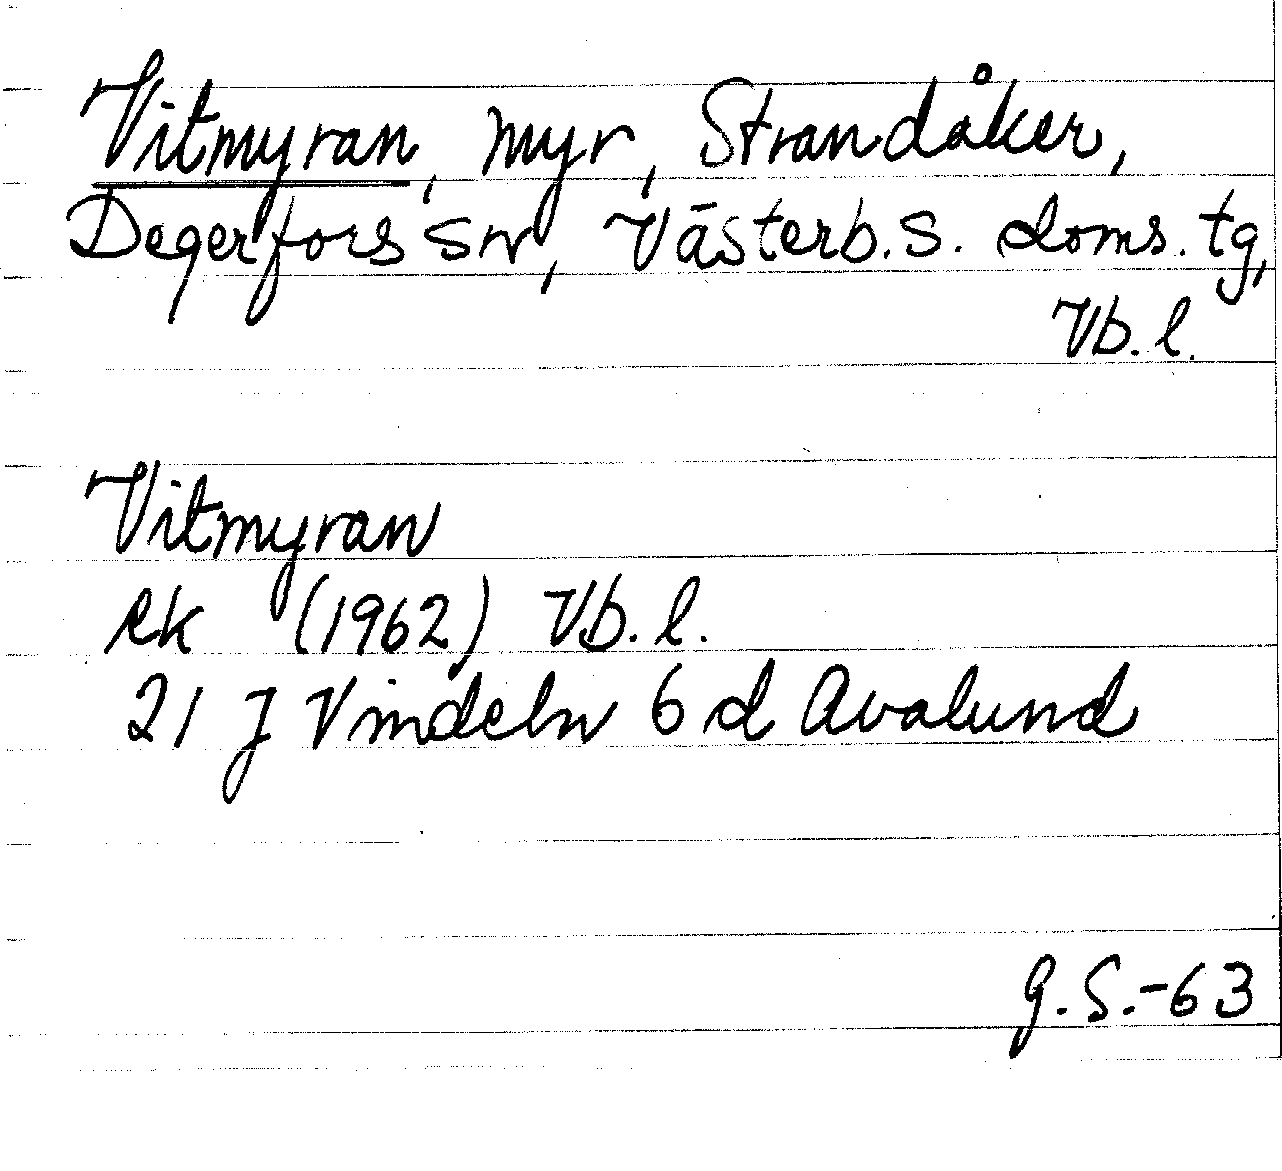 Vitmyran, myr, Strandåker,
Degerfors sn, Västerb. s. doms. tg,
Vb. l.
Vitmyran
ek (1962) Vb. l.
21 J Vindeln 6 d Avalund
G. S.-63